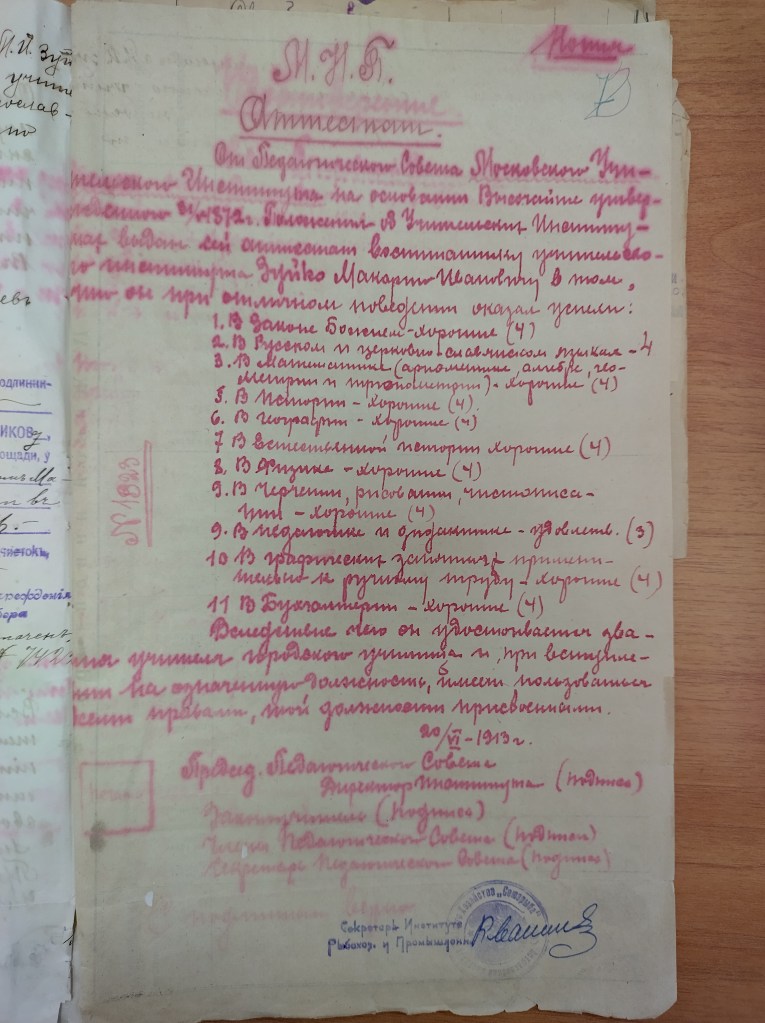 Копия
М.Н.П.
Аттестат.
От Педагогического Совета Московского Учи-
тельского Института на основании Высочайше утвер-
1872 г. Положения об Учительских Институ-
тах выдан сей аттестат воспитаннику учительско-
го института Зуйко Макарию Ивановичу в том,
что он при отличном поведении оказал успехи:
1. В Законе Божием - хорошие (4)
2. В Русском и церковно-славянском языках - 4
3. В Математике (арифметике, алгебре, гео-
метрии и тригонометрии) - хорошие (4)
5. В Истории - хорошие (4).
6. В Географии - хорошие (4)
7 В Естественной истории хорошие (4)
8. В Физике - хорошие (4)
9. В Черчении, рисовании, чистописа-
нии - хорошие (4)
9. В педагогике и дидактике - удовлетв. (3)
10 В графических занятиях примени-
тельно к ручному труду - хорошие (4)
11 В Бухгалтерии - хорошие (4)
Вследствие чего он удостоивается зва-
ния учителя городского училища и, при вступле-
нии на означенную должность, имеет пользоваться
всеми правами, той должности присвоенными.
20/VI - 1913 г.
№ 1823
Председ. Педагогического Совета
Директор Института (подпись)
Законоучитель (подпись)
Члены Педагогического Совета (подписи)
Секретарь Педагогического Совета (подпись)
подлинным верно
Секретарь Института
Рыбохоз. и Промышленн.